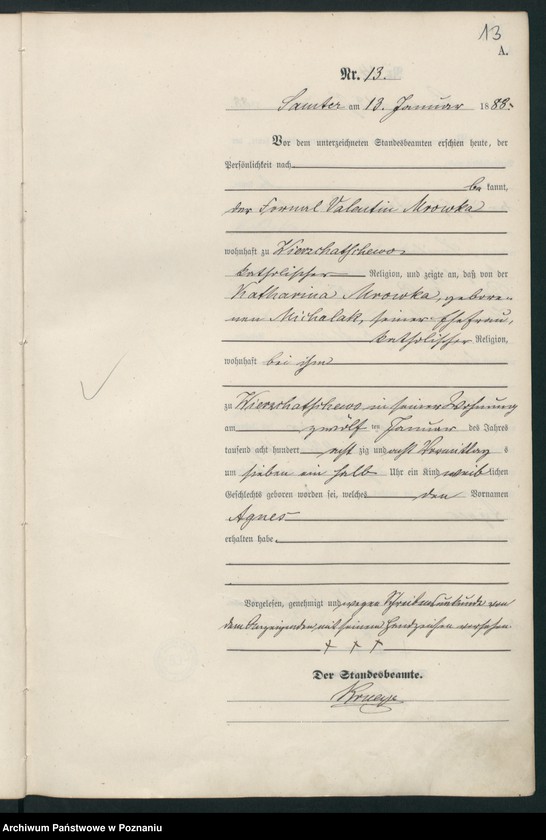 13
A.
Nr. 13.
Samter am 13. Januar 1888.
Vor dem unterzeichneten Standesbeamten erschien heute, der
Persönlichkeit nach
be kannt,
der Fornal Valentin Mrowka
wohnhaft zu Wierzchatschewo
katholischer Religion, und zeigte an, daß von der
Katharina Mrowka, gebore-
nen Michalak, seiner Ehefrau,
katholischer Religion,
wohnhaft bei ihm
zu Wierzchatschewo in seiner Wohnung
am zwölf ten Januar des Jahres
tausend acht hundert acht zig und acht Vormittag s
um sieben ein halb Uhr ein Kind weib lichen
Geschlechts geboren worden sei, welches den Vornamen
Agnes
erhalten habe.
Vorgelesen, genehmigt und wegen Schreibensunkunde von
dem Anzeigenden mit seinem Handzeichen versehen.
+ + +
Der Standesbeamte.
Archiwum Państwowe w Poznaniu